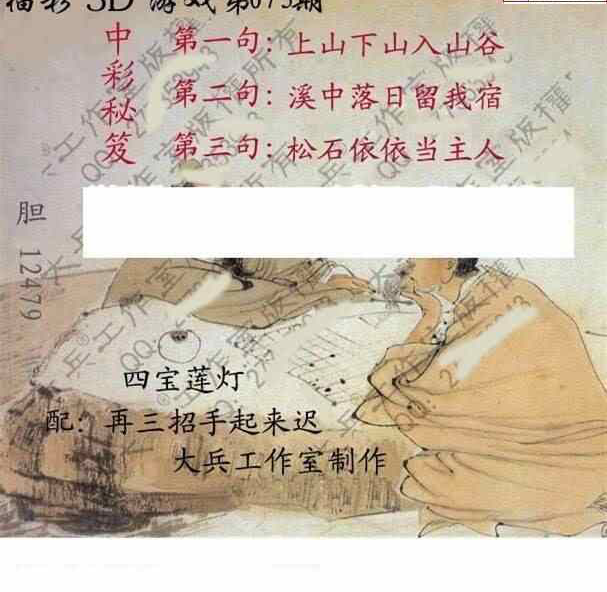 福彩 3D 游戏 第075期
中彩秘笈
第一句：上山下山入山谷
第二句：溪中落日留我宿
第三句：松石依依当主人
胆 12479
四宝莲灯
配：再三招手起来迟
大兵工作室制作